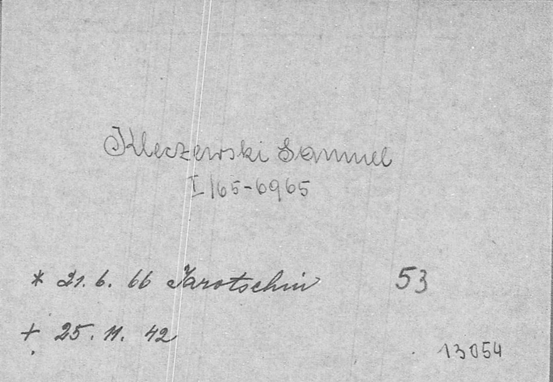 Kleczewski Samuel
I/65-6965
* 21. 6. 66 Jarotschin 53
+ 25. 11. 42
13054